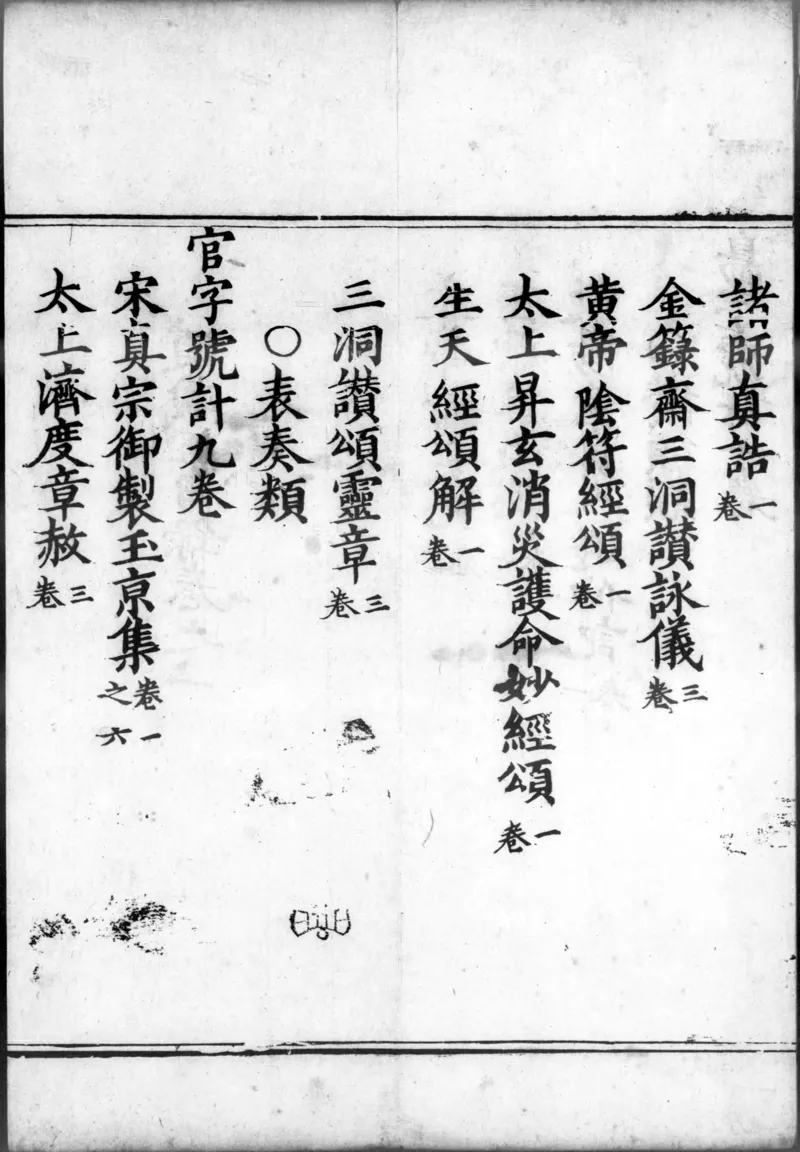 諸師真誥一卷
金籙齋三洞讃詠儀三卷
黄帝陰符經頌一卷
太上昇玄消災護命妙經頌一卷
生天經頌解一卷
三洞讃頌靈章三卷
○表奏類
官字號計九卷
宋真宗御製玉京集卷一之六
太上濟度章赦三卷